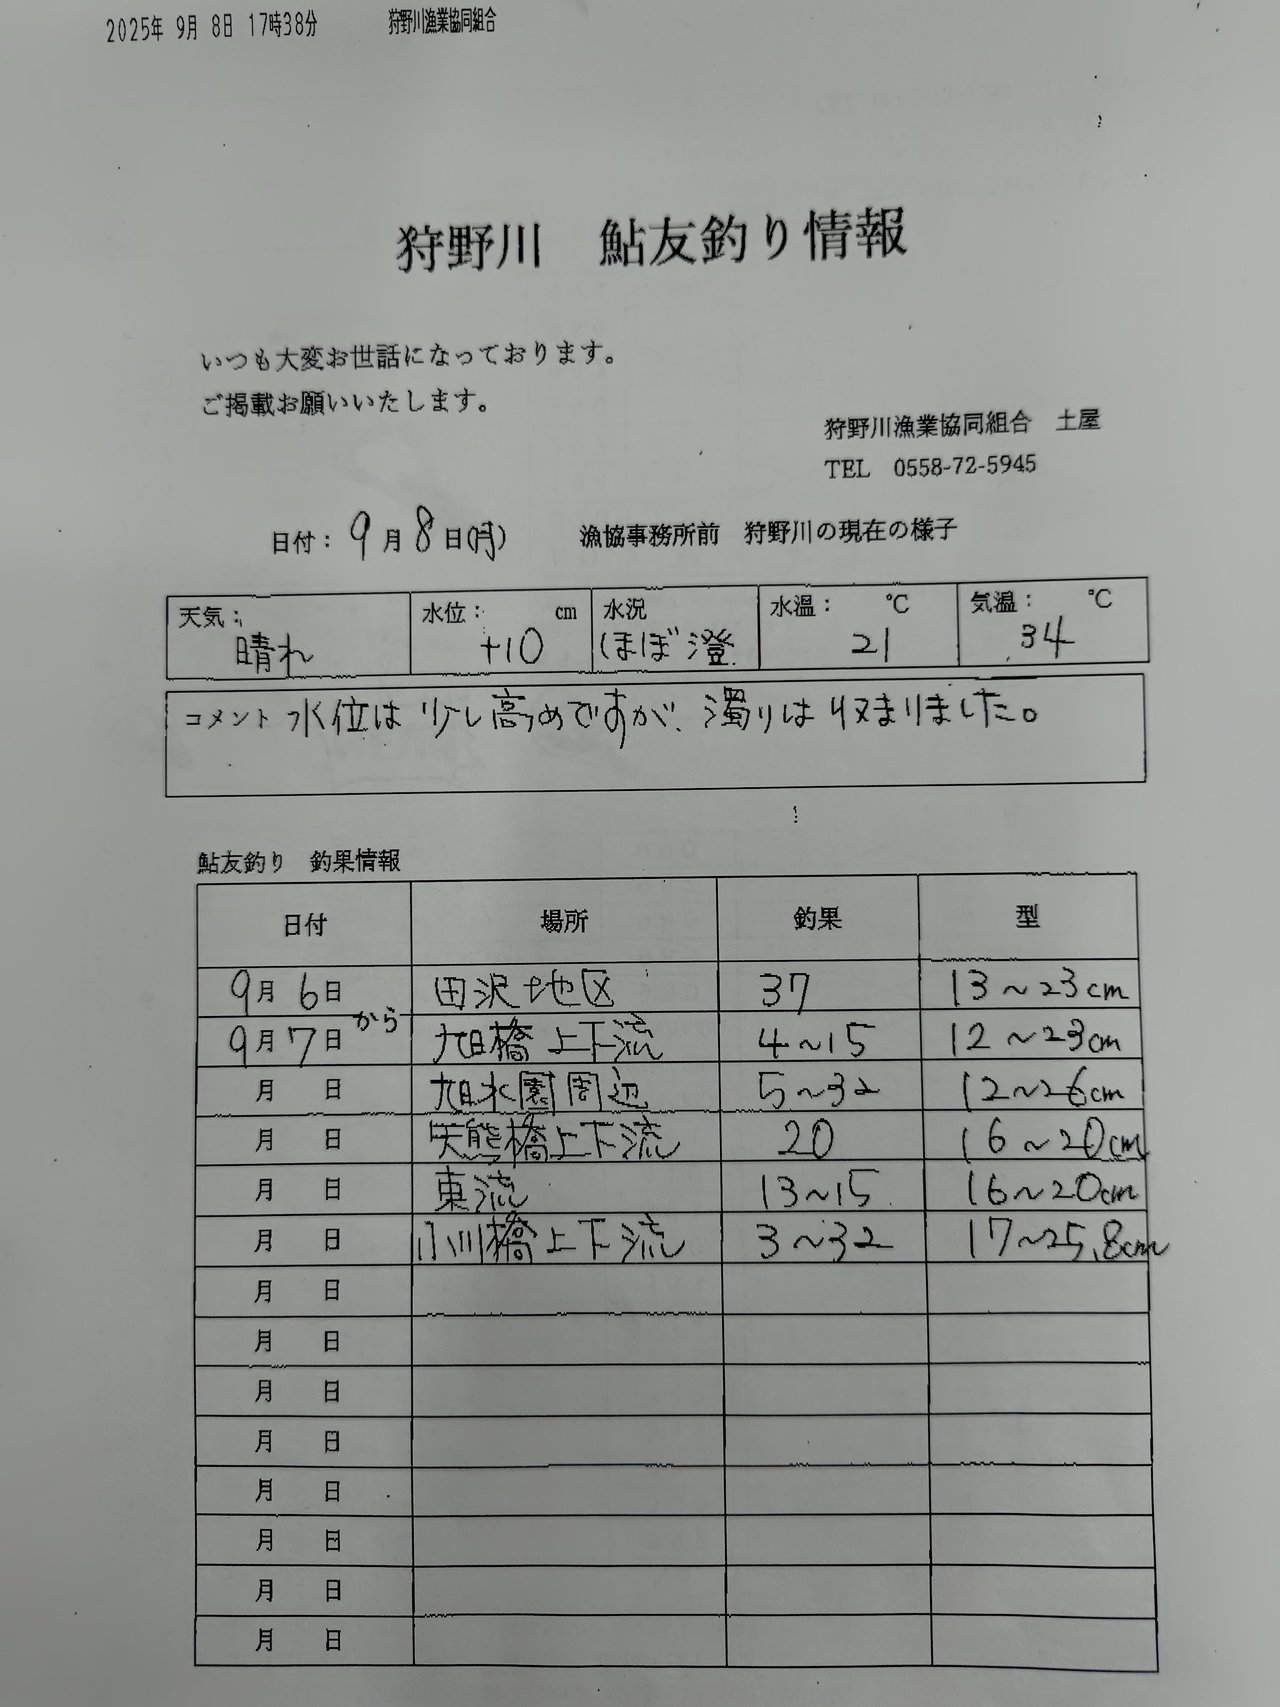 2025年 9月 8日 17時38分 狩野川漁業協同組合
狩野川 鮎友釣り情報
いつも大変お世話になっております。
ご掲載お願いいたします。
狩野川漁業協同組合 土屋
TEL 0558-72-5945
日付： 9月8日(月) 漁協事務所前 狩野川の現在の様子
天気： 水位： cm 水況 水温： ℃ 気温： ℃
晴れ +10 ほぼ澄 21 34
コメント 水位は少し高めですが、濁りは収まりました。
鮎友釣り 釣果情報
日付 場所 釣果 型
9月6日 田沢地区 37 13～23cm
から
9月7日 旭橋上下流 4～15 12～23cm
月 日 旭水園周辺 5～32 12～26cm
月 日 矢熊橋上下流 20 16～20cm
月 日 東流 13～15 16～20cm
月 日 小川橋上下流 3～32 17～25.8cm
月 日
月 日
月 日
月 日
月 日
月 日
月 日
月 日